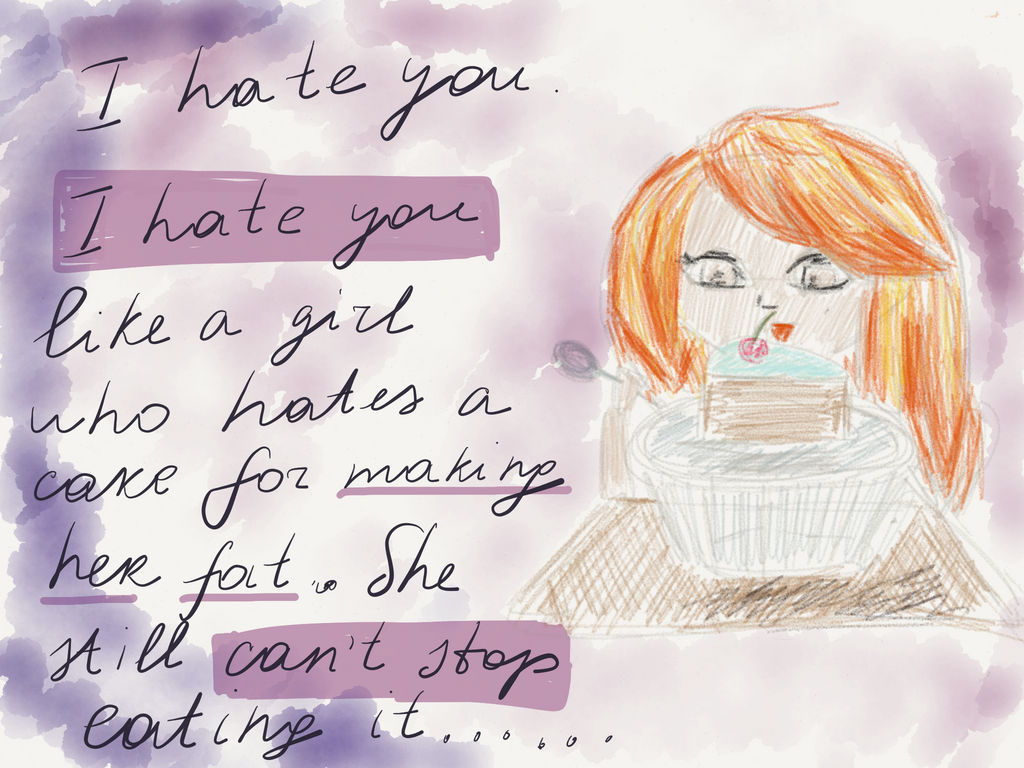 I hate you.
I hate you
like a girl
who hates a
cake for making
her fat... She
still can't stop
eating it.......